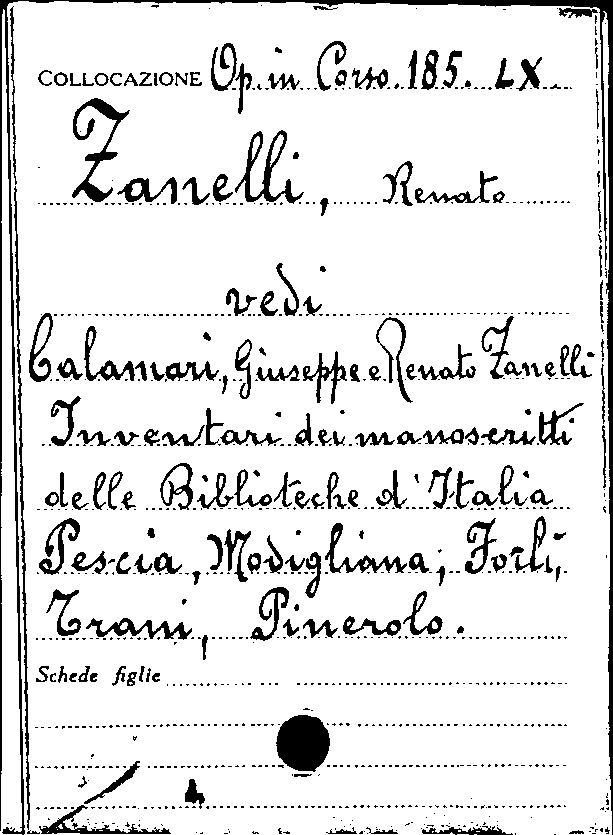 COLLOCAZIONE Op. in Corso. 185. LX.
Zanelli, Renato
vedi
Calamari, Giuseppe e Renato Zanelli
Inventari dei manoscritti
delle Biblioteche d'Italia
Pescia, Modigliana, Forlì,
Trani, Pinerolo.
Schede figlie